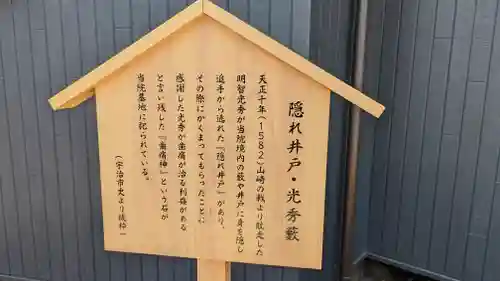 隠れ井戸・光秀藪
天正十年（1582）山崎の戦より敗走した
明智光秀が当院境内の藪や井戸に身を隠し
追手から逃れた『隠れ井戸』があり、
その際にかくまってもらったことに
感謝した光秀が歯痛が治る利益がある
と言い残した『歯痛神』という石が
当院墓地に祀られている。
（宇治市史より抜粋）